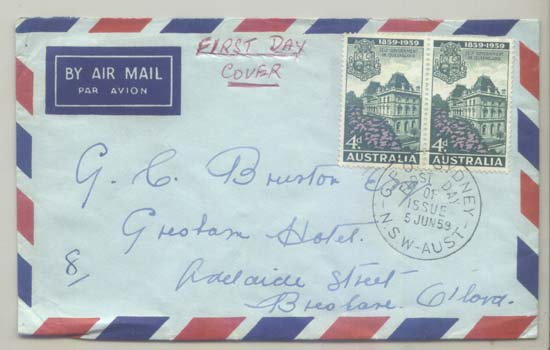 FIRST DAY
COVER
BY AIR MAIL
PAR AVION
1859-1959
SELF GOVERNMENT
IN QUEENSLAND
4d
AUSTRALIA
1859-1959
SELF GOVERNMENT
IN QUEENSLAND
4d
AUSTRALIA
G.P.O. SYDNEY
FIRST DAY
OF
ISSUE
5 JUN 59
N.S.W-AUST.
G. C. Bruxton
Gresham Hotel.
8/
Adelaide Street
Brisbane.